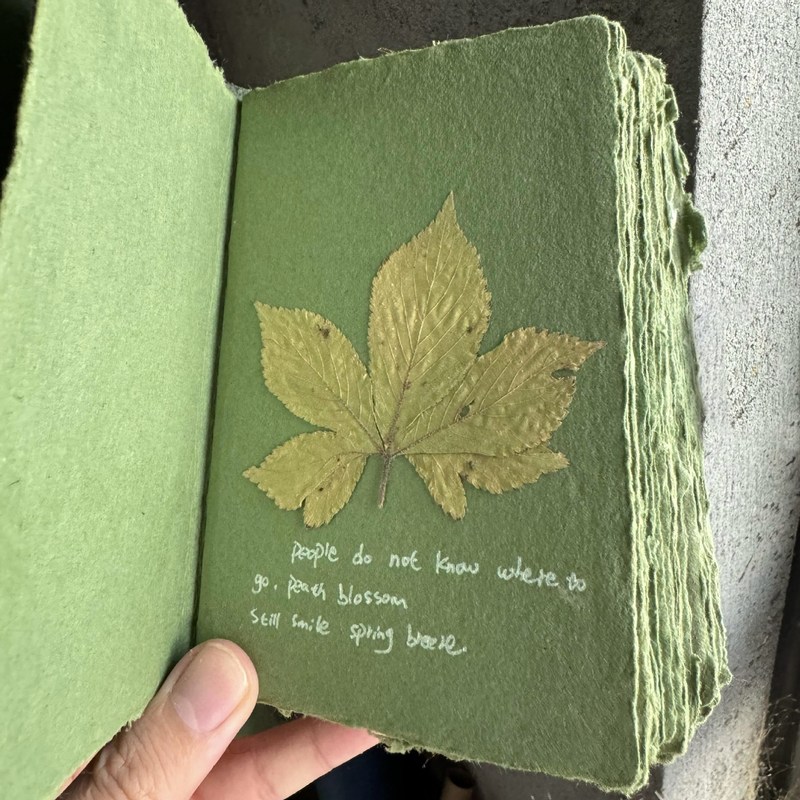 people do not know where to
go. peach blossom
still smile spring breeze.